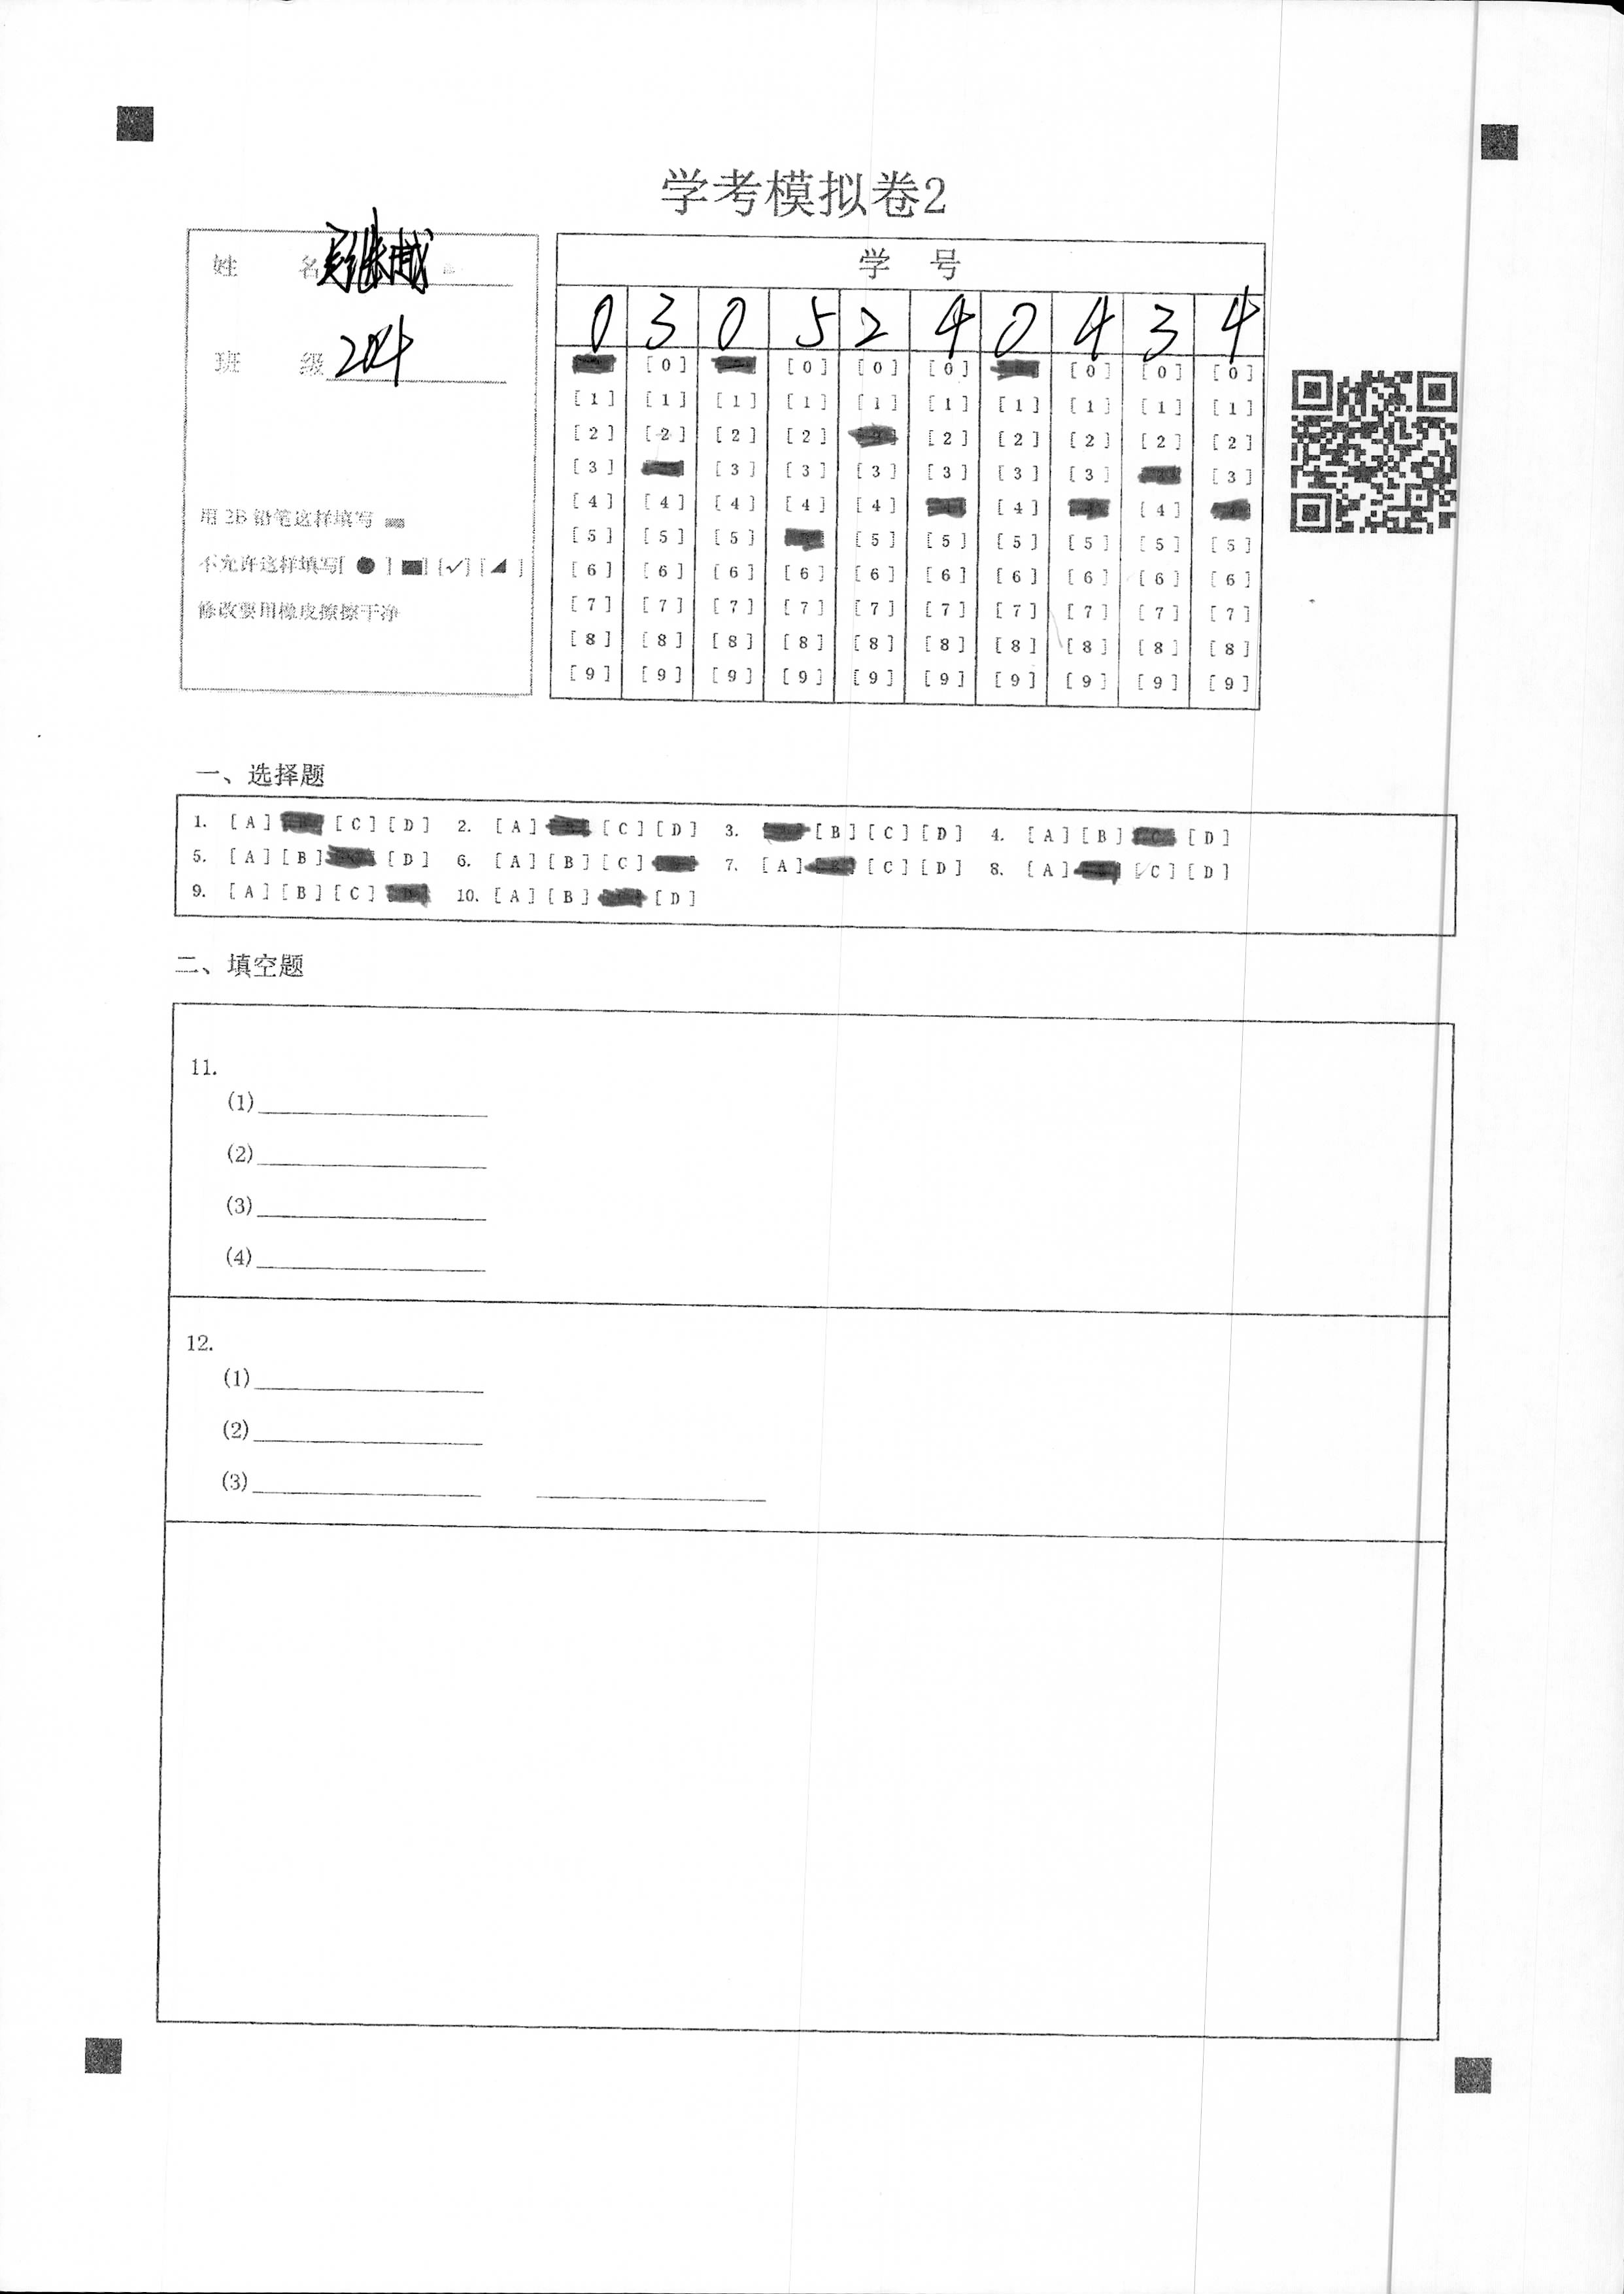 学考模拟卷2
姓 名
班 级 204
用 2B 铅笔这样填写
不允许这样填写[ ● ] [■] [✓] [◢ ]
修改要用橡皮擦擦干净
学 号
0 3 0 5 2 4 0 4 3 4
[0] [0] [0] [0] [0] [0]
[1] [1] [1] [1] [1] [1] [1] [1] [1] [1]
[2] [2] [2] [2] [2] [2] [2] [2] [2]
[3] [3] [3] [3] [3] [3] [3] [3]
[4] [4] [4] [4] [4] [4] [4]
[5] [5] [5] [5] [5] [5] [5] [5] [5]
[6] [6] [6] [6] [6] [6] [6] [6] [6] [6]
[7] [7] [7] [7] [7] [7] [7] [7] [7] [7]
[8] [8] [8] [8] [8] [8] [8] [8] [8] [8]
[9] [9] [9] [9] [9] [9] [9] [9] [9] [9]
一、选择题
1. [A] [C] [D] 2. [A] [C] [D] 3. [B] [C] [D] 4. [A] [B] [D]
5. [A] [B] [D] 6. [A] [B] [C] 7. [A] [C] [D] 8. [A] [C] [D]
9. [A] [B] [C] 10. [A] [B] [D]
二、填空题
11.
(1)
(2)
(3)
(4)
12.
(1)
(2)
(3)